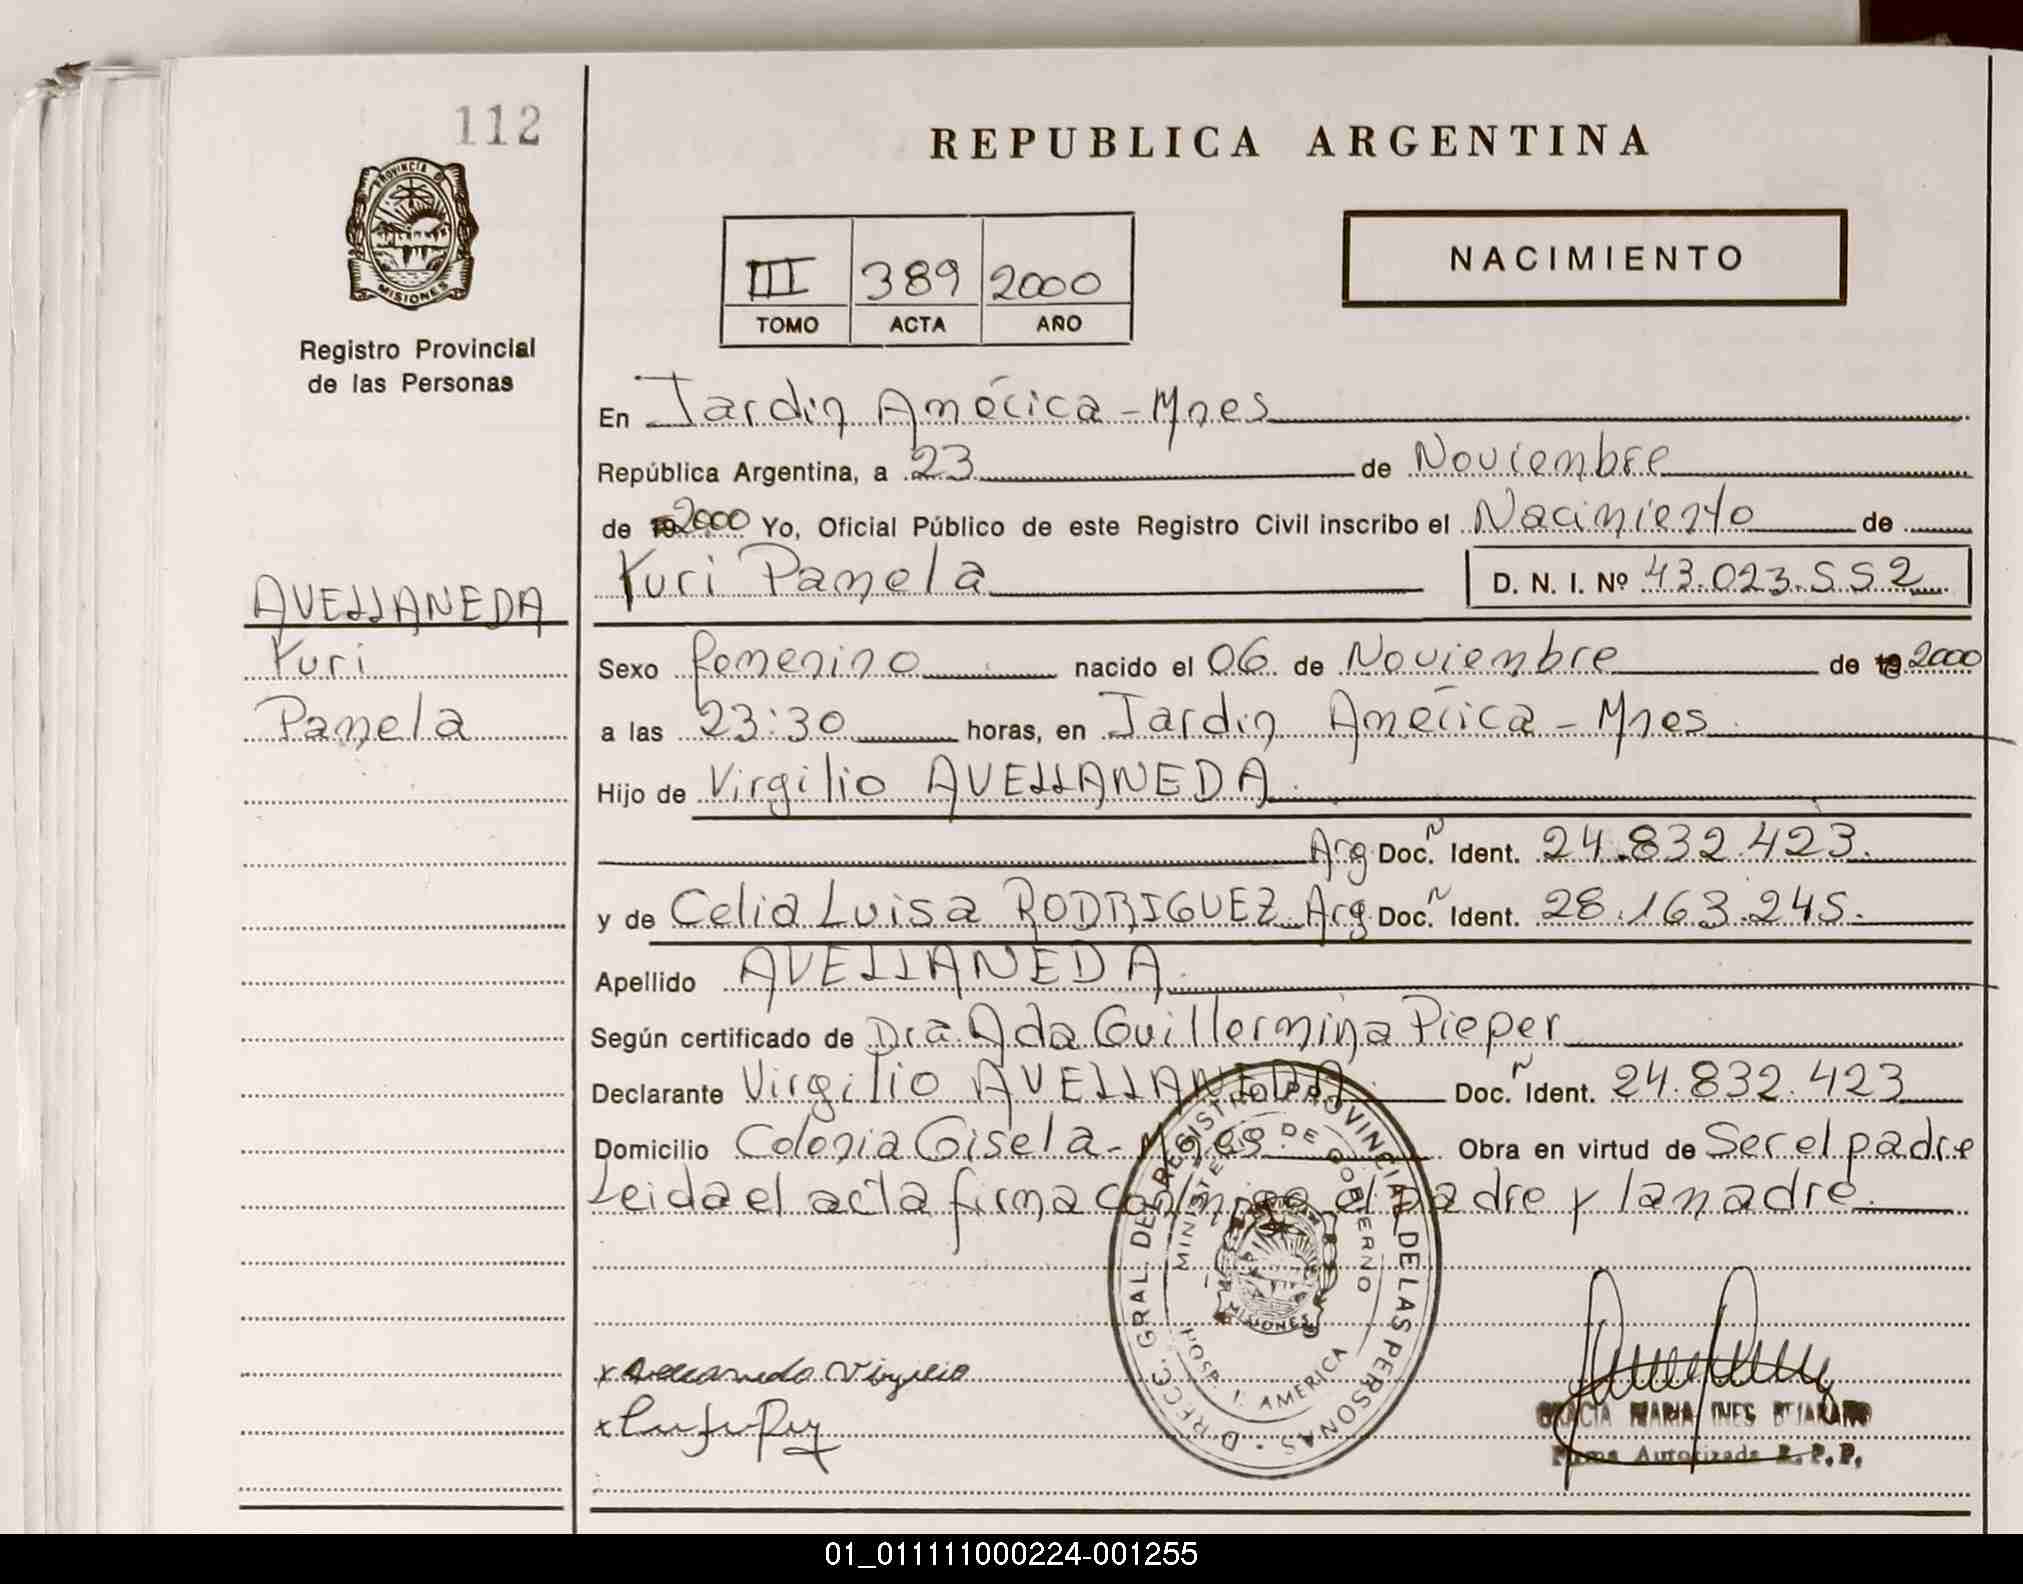 112
REPUBLICA ARGENTINA
PROVINCIA D
MISIONES
NACIMIENTO
III 389 2000
TOMO ACTA AÑO
Registro Provincial
de las Personas
En Jardin América - Mnes
República Argentina, a 23 de Noviembre
de 2000 Yo, Oficial Público de este Registro Civil inscribo el Nacimiento de
Yuri Pamela D. N. I. Nº 43.023.552
AVELLANEDA
Yuri
Pamela
Sexo femenino nacido el 06 de Noviembre de 19 2000
a las 23:30 horas, en Jardin América - Mnes
Hijo de Virgilio AVELLANEDA
Arg Doc. Ident. 24.832.423.
y de Celia Luisa RODRIGUEZ Arg Doc. Ident. 28.163.245.
Apellido AVELLANEDA
Según certificado de Dra. Ada Guillermina Pieper
Declarante Virgilio AVELLANEDA Doc. Ident. 24.832.423
Domicilio Colonia Gisela - Mnes. Obra en virtud de Ser el padre
Leida el acta firma conmigo el padre y la madre.
DIRECC. GRAL. DEL REGISTRO PROVINCIAL DE LAS PERSONAS
MINISTERIO DE GOBIERNO
MISIONES
HOSP. J. AMERICA
x Avellaneda Virgilio
GRACIA MARIA INES BEJARANO
Firma Autorizada R.P.P.
01_011111000224-001255